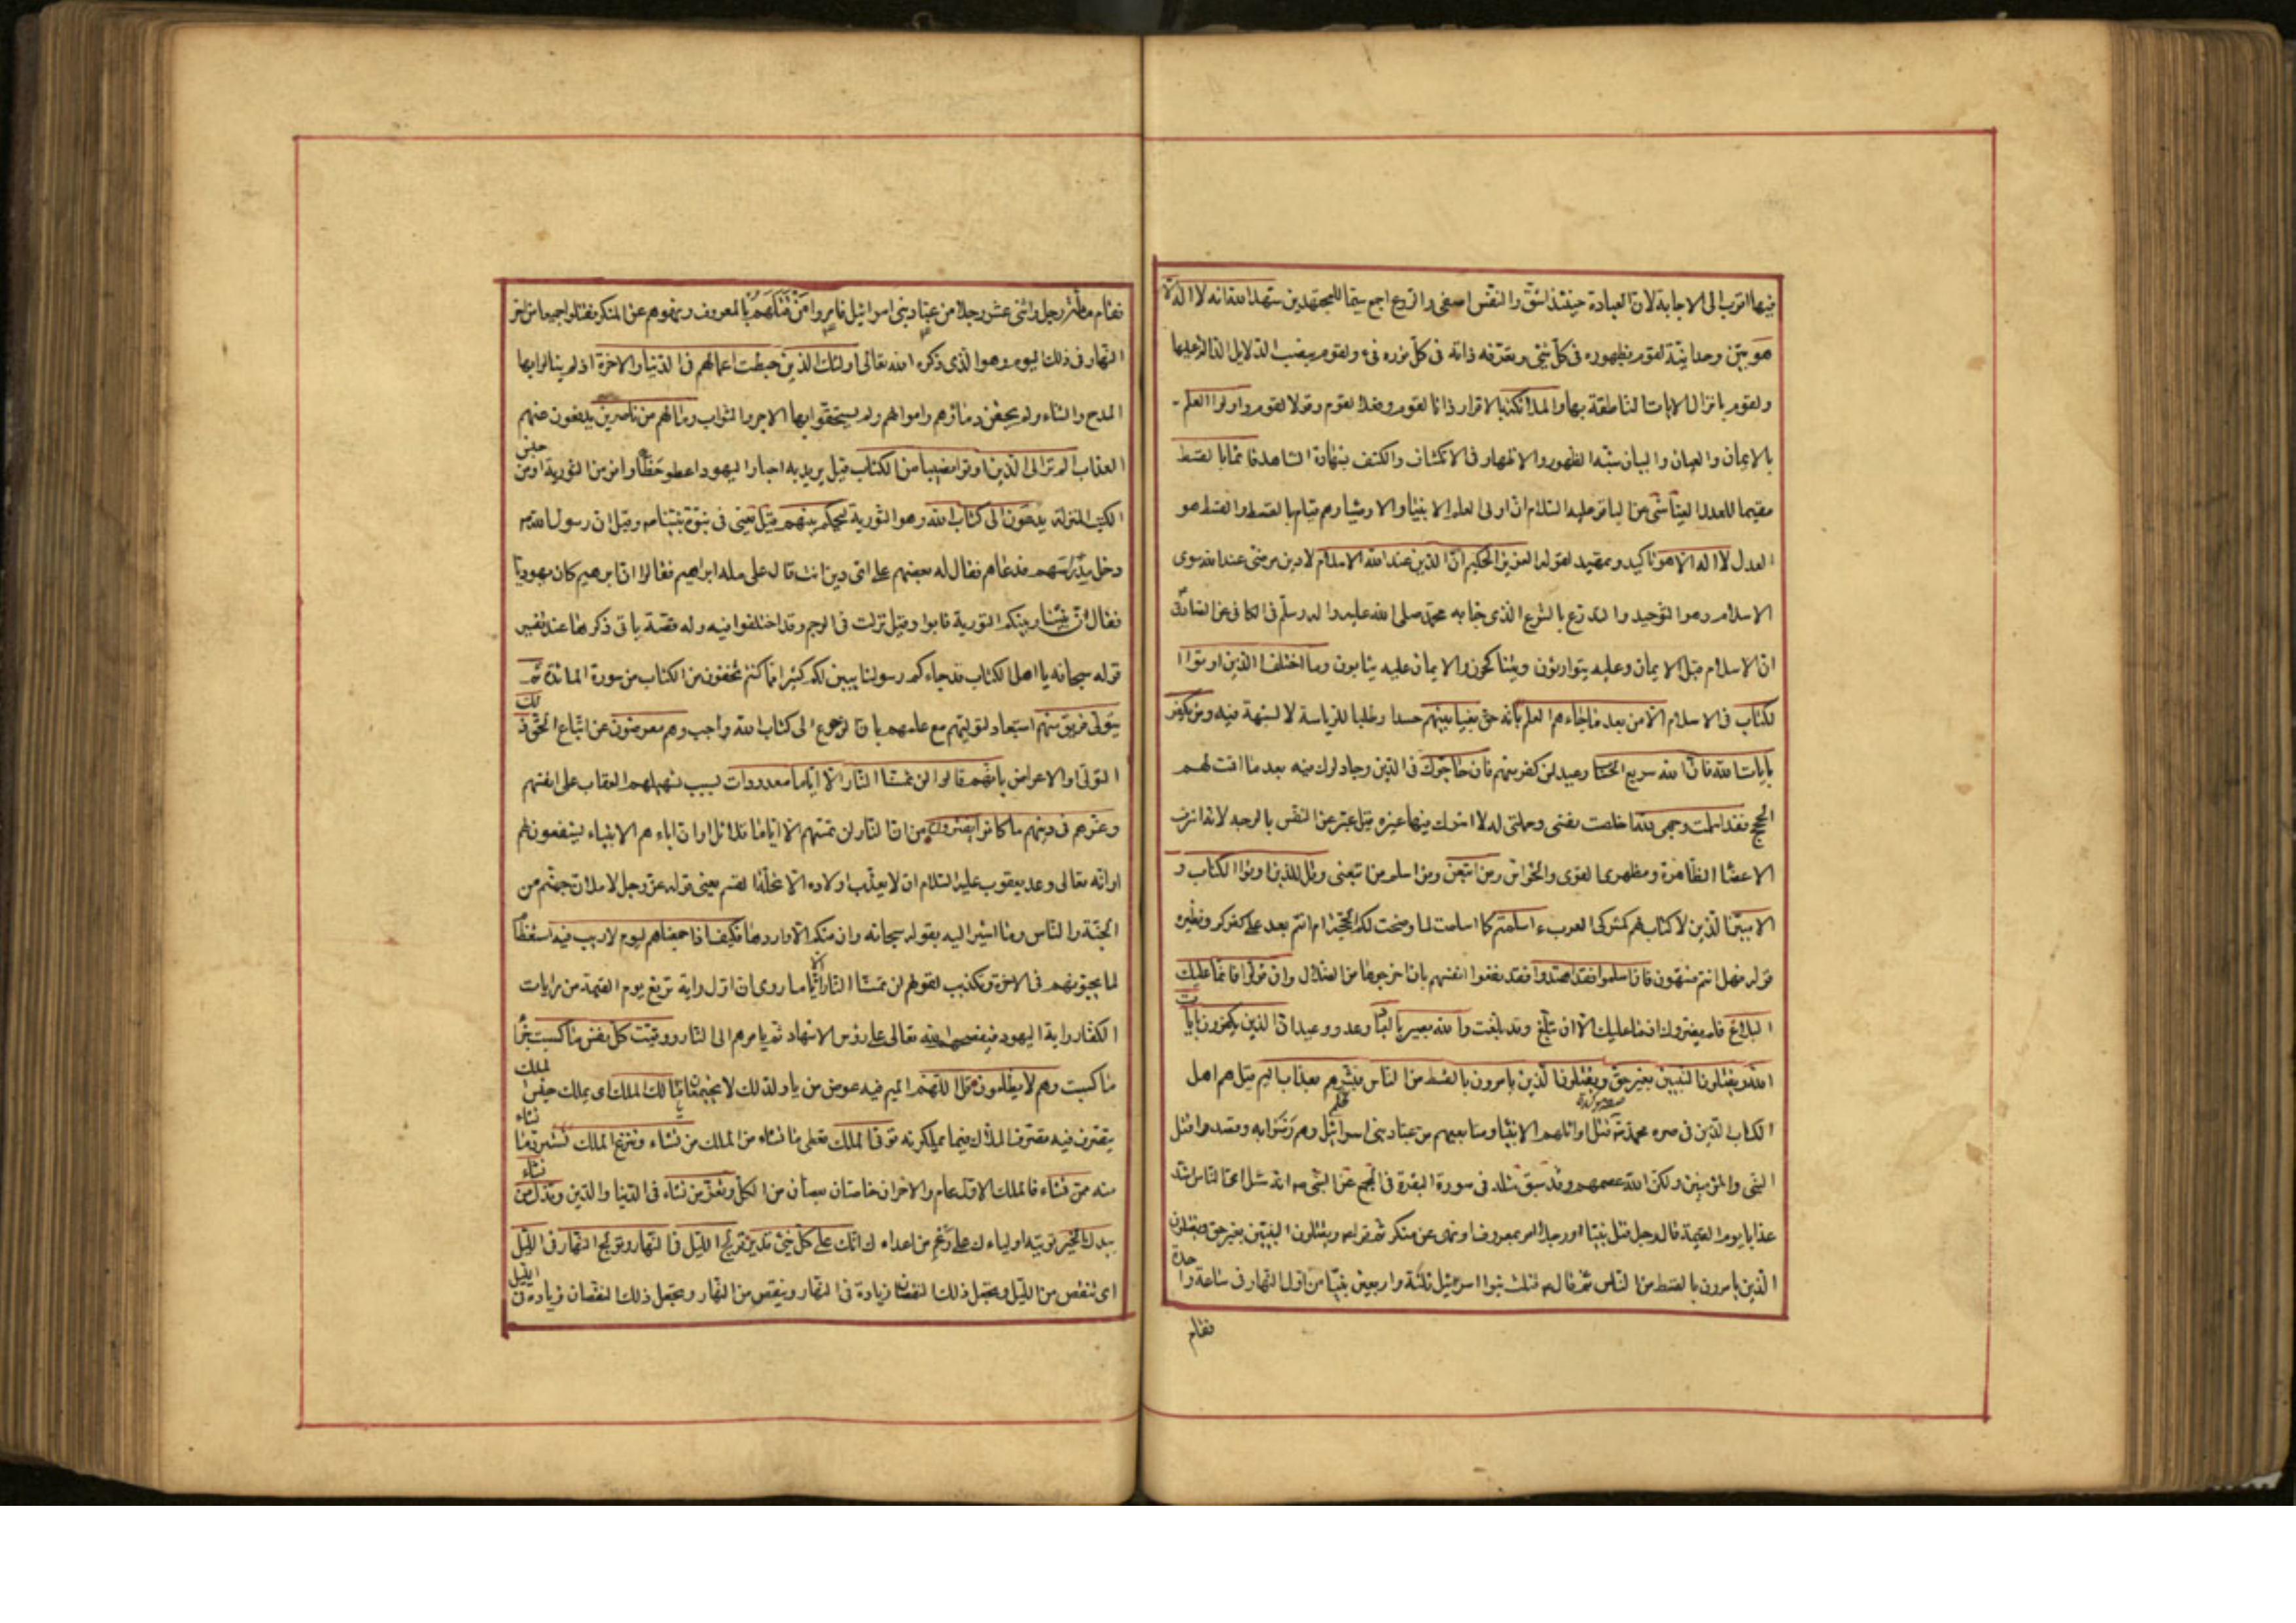 فيها اقرب الى الاجابة لان العبادة حينئذ اشق والنفس اصفى والروع اجمع سيما للمجتهدين شهد الله انه لا اله الا
هو بين وحدانيته لقوم بظهوره في كل شئ وتعرفه ذاته في كل نور وفئ ولقوم بنصب الدلايل الدالة عليها
ولقوم بانزال الايات الناطقة بها والملائكة بالاقرار ذاتا لقوم وفعلا لقوم وقولا لقوم واولوا العلم
بالايمان والعيان والبيان شبه الظهور والاظهار في الانكشاف والكشف بشهادة الشاهد قائما بالقسط
مقيما للعدل العياشي عن الباقر عليه السلام ان اولى العلم الانبياء والاوصياء وهم قيام بالقسط والقسط هو
العدل لا اله الا هو تاكيد وتمهيد لقوله العزيز الحكيم ان الدين عند الله الاسلام لا دين مرضى عند الله سوى
الاسلام وهو التوحيد والتدرع بالشرع الذي جاء به محمد صلى الله عليه واله وسلم في الكافي عن الصادق
ان الاسلام قبل الايمان وعليه يتوارثون ويتناكحون والايمان عليه يثابون وما اختلف الذين اوتوا ا
لكتاب في الاسلام الا من بعد ما جاءهم العلم بانه حق بغيا بينهم حسدا وطلبا للرياسة لا لشبهة فيه ومن يكفر
بايات الله فان الله سريع الحساب وعيد لمن كفر منهم فان حاجوك في الدين وجادلوك فيه بعد ما اقمت لهم
الحجج فقل اسلمت وجهى لله اخلصت نفسى وجملتى له لا اشرك فيها غيره قيل عبر عن النفس بالوجه لانه اشرف
الاعضاء الظاهرة ومظهر القوى والحواس ومن اتبعن ومن اسلم من تبعنى وقل للذين اوتوا الكتاب و
الاميين الذين لا كتاب لهم كمشركى العرب ءاسلمتم كما اسلمت لما وضحت لكم الحجة ام انتم بعد على كفركم ونظيره
قوله فهل انتم منتهون فان اسلموا فقد اهتدوا فقد نفعوا انفسهم بان اخرجوها من الضلال وان تولوا فانما عليك
البلاغ فلم يضروك اذ ما عليك الا ان تبلغ وقد بلغت والله بصير بالعباد وعد ووعيد ان الذين يكفرون بايات
الله ويقتلون النبيين بغير حق ويقتلون الذين يامرون بالقسط من الناس فبشرهم بعذاب اليم قيل هم اهل
الكتاب الذين في عصره محمد قتل اوائلهم الانبياء ومتابعيهم من عباد بنى اسرائيل وهم رضوا به وقصدوا قتل
النبى والمؤمنين ولكن الله عصمهم وقد سبق مثله في سورة البقرة في المجمع عن النبى ص انه سئل اى الناس اشد
عذابا يوم القيمة قال رجل قتل نبيا او رجلا امر بمعروف او نهى عن منكر ثم قرا ص ويقتلون النبيين بغير حق ويقتلون
الذين يامرون بالقسط من الناس ثم قال ص قتلت بنوا اسرائيل ثلثة واربعين نبيا من اول النهار في ساعة واحدة
فقام
فقام مائة رجل واثنى عشر رجلا من عباد بنى اسرائيل فامروا من قتلهم بالمعروف ونهوهم عن المنكر فقتلوا جميعا من اخر
النهار في ذلك اليوم وهو الذي ذكره الله تعالى اولئك الذين حبطت اعمالهم في الدنيا والاخرة اذ لم ينالوا بها
المدح والثناء ولم يحقن دماؤهم واموالهم ولم يستحقوا بها الاجر والثواب وما لهم من ناصرين يدفعون عنهم
العذاب الم تر الى الذين اوتوا نصيبا من الكتاب قيل يريد به احبار اليهود اعطوا حظا وافرا من التورية او من جنس
الكتب المنزلة يدعون الى كتاب الله وهو التورية ليحكم بينهم قيل يعنى في نبوة نبينا ص وقيل ان رسول الله ص
دخل مدرسهم فدعاهم فقال له بعضهم على اى دين انت قال على ملة ابراهيم فقالوا ان ابرهيم كان يهوديا
فقال ان بيننا وبينكم التورية فابوا وقيل نزلت في الرجم وقد اختلفوا فيه وله قصة ياتى ذكرها عند تفسير
قوله سبحانه يا اهل الكتاب قد جاءكم رسولنا يبين لكم كثيرا مما كنتم تخفون من الكتاب من سورة المائدة ثم
يتولى فريق منهم استبعاد لتوليهم مع علمهم بان الرجوع الى كتاب الله واجب وهم معرضون عن اتباع الحق ذلك
التولى والاعراض بانهم قالوا لن تمسنا النار الا اياما معدودات بسبب تسهيلهم العقاب على انفسهم
وغرهم في دينهم ما كانوا يفترون من ان النار لن تمسهم الا اياما قلائل او ان اباءهم الانبياء يشفعون لهم
او انه تعالى وعد يعقوب عليه السلام ان لا يعذب اولاده الا تحلة القسم يعنى قوله عز وجل لاملان جهنم من
الجنة والناس وما اشير اليه بقوله سبحانه وان منكم الا واردها فكيف اذا جمعناهم ليوم لا ريب فيه استعظام
لما يحيق بهم في الاخرة وتكذيب لقولهم لن تمسنا النار الا اياما روى ان اول راية ترفع يوم القيمة من رايات
الكفار راية اليهود فيفضحهم الله تعالى على رؤس الاشهاد ثم يامرهم الى النار ووفيت كل نفس ما كسبت جزاء
ما كسبت وهم لا يظلمون قل اللهم الميم فيه عوض من يا ولذلك لا يجتمعان مالك الملك اى يملك جنس الملك
يتصرف فيه تصرف الملاك فيما يملكونه تؤتى الملك تعطى ما تشاء من الملك من تشاء وتنزع الملك تسترد ما تشاء
منه ممن تشاء فالملك الاول عام والاخران خاصتان بعضان من الكل وتعز من تشاء في الدنيا والدين وتذل من تشاء
بيدك الخير تؤتيه اولياءك على رغم من اعداءك انك على كل شئ قدير تولج الليل في النهار وتولج النهار في الليل
اى تنقص من الليل وتجعل ذلك النقصان زيادة في النهار وتنقص من النهار وتجعل ذلك النقصان زيادة في الليل